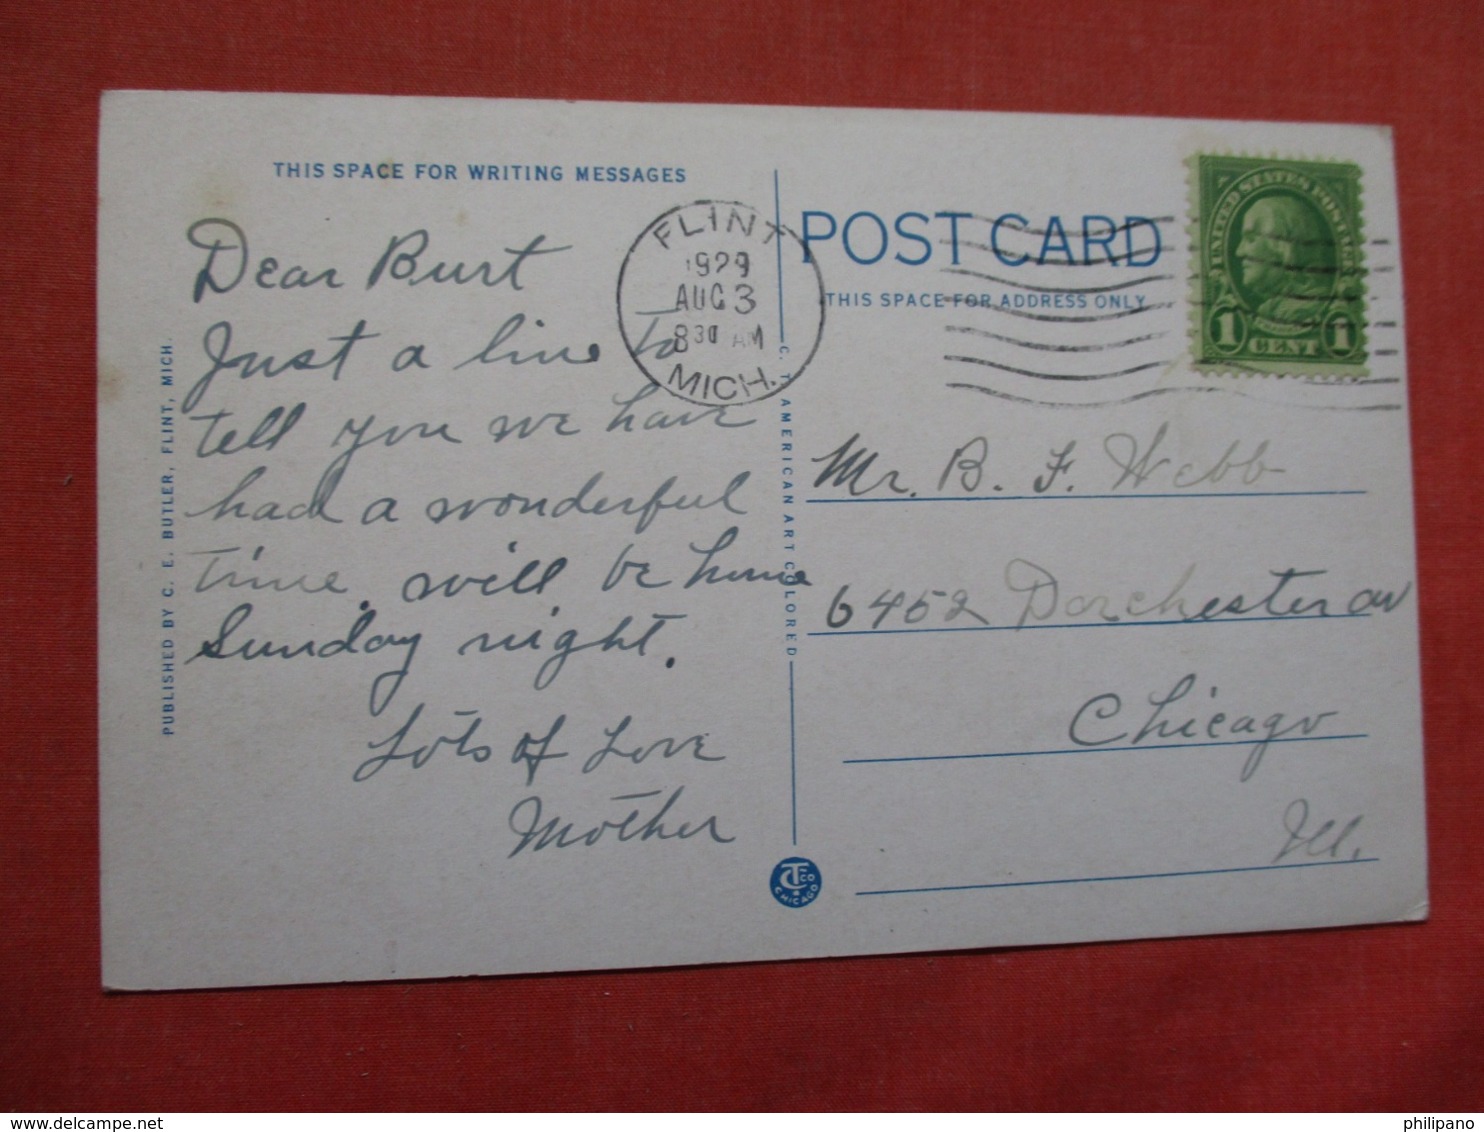 THIS SPACE FOR WRITING MESSAGES
Dear Burt
Just a line to
tell you we have
had a wonderful
time. will be home
Sunday night.
Lots of Love
Mother
PUBLISHED BY C. E. BUTLER, FLINT, MICH.
FLINT
1929
AUG 3
8 30 AM
MICH.
C. T. AMERICAN ART COLORED
POST CARD
THIS SPACE FOR ADDRESS ONLY
UNITED STATES POSTAGE
FRANKLIN
1 CENT 1
Mr. B. F. Webb
6452 Dorchester av
Chicago
Ill.
CT CO
CHICAGO
philipano